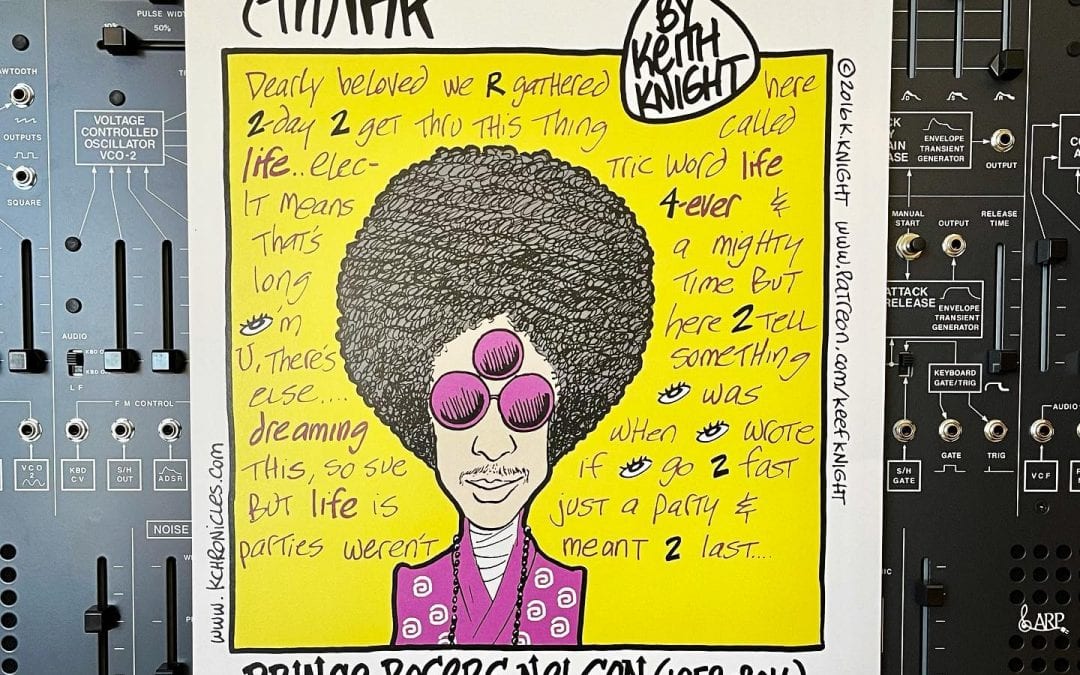 (TH)INK
BY
KEITH
KNIGHT
Dearly beloved we R gathered here
2-day 2 get thru this thing called
life.. elec- tric word life
IT means 4-ever &
That's a mighty
long Time But
👁'm here 2 Tell
U, There's something
else.... 👁 was
dreaming when 👁 wrote
This, so sue if 👁 go 2 fast
But life is just a party &
parties weren't meant 2 last....
PRINCE ROGERS NELSON (1958-2016)
www.Kchronicles.com
©2016 K.KNIGHT www.Patreon.com/keefknight
PULSE WID
50%
AWTOOTH
OUTPUTS
SQUARE
VOLTAGE
CONTROLLED
OSCILLATOR
VCO-2
AUDIO
LF
FM CONTROL
VCO
2
KBD
CV
S/H
OUT
ADSR
NOISE
ENVELOPE
TRANSIENT
GENERATOR
OUTPUT
MANUAL
START
OUTPUT
RELEASE
TIME
ATTACK
RELEASE
ENVELOPE
TRANSIENT
GENERATOR
KEYBOARD
GATE/TRIG
S/H
GATE
GATE
TRIG
AUDIO
VCF
ARP